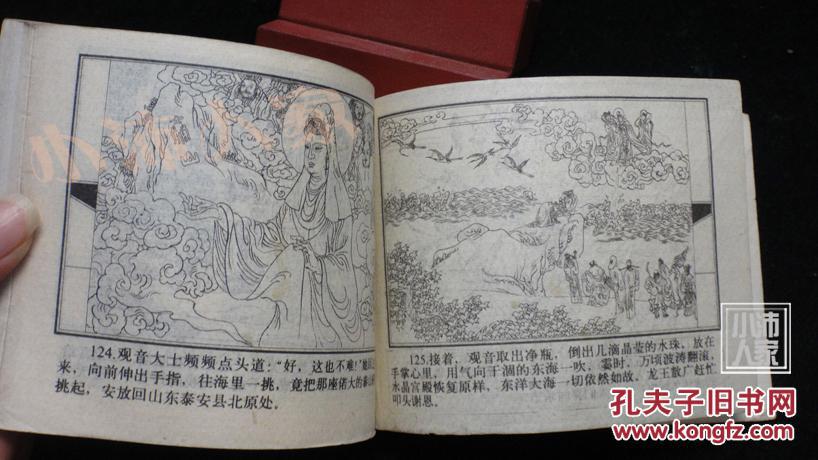 124.观音大士频频点头道：“好，这也不难！”
来，向前伸出手指，往海里一挑，竟把那座偌大的泰山
挑起，安放回山东泰安县北原处。
125.接着，观音取出净瓶，倒出几滴晶莹的水珠，放在
手掌心里，用气向干涸的东海一吹，霎时，万顷波涛翻滚，
水晶宫殿恢复原样，东洋大海一切依然如故。龙王散广赶忙
叩头谢恩。
小沛
人家
孔夫子旧书网